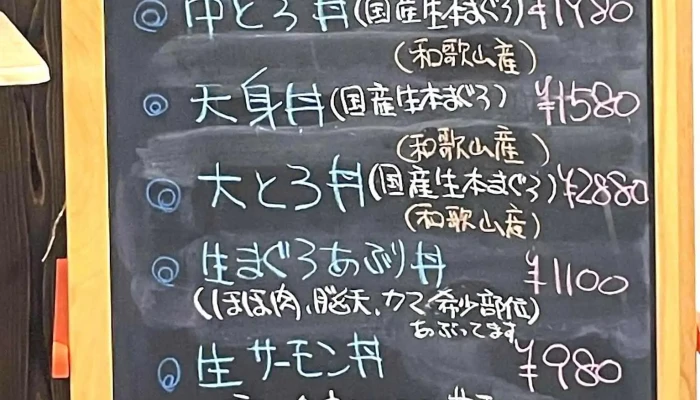 ◎ 中とろ丼(国産生本まぐろ)¥1980
(和歌山産)
◎ 天身丼(国産生本まぐろ) ¥1580
(和歌山産)
◎ 大とろ丼(国産生本まぐろ)¥2880
(和歌山産)
◎ 生まぐろあぶり丼 ¥1100
(ほほ肉、脳天、カマ 希少部位)
あぶってます。
◎ 生サーモン丼 ¥980